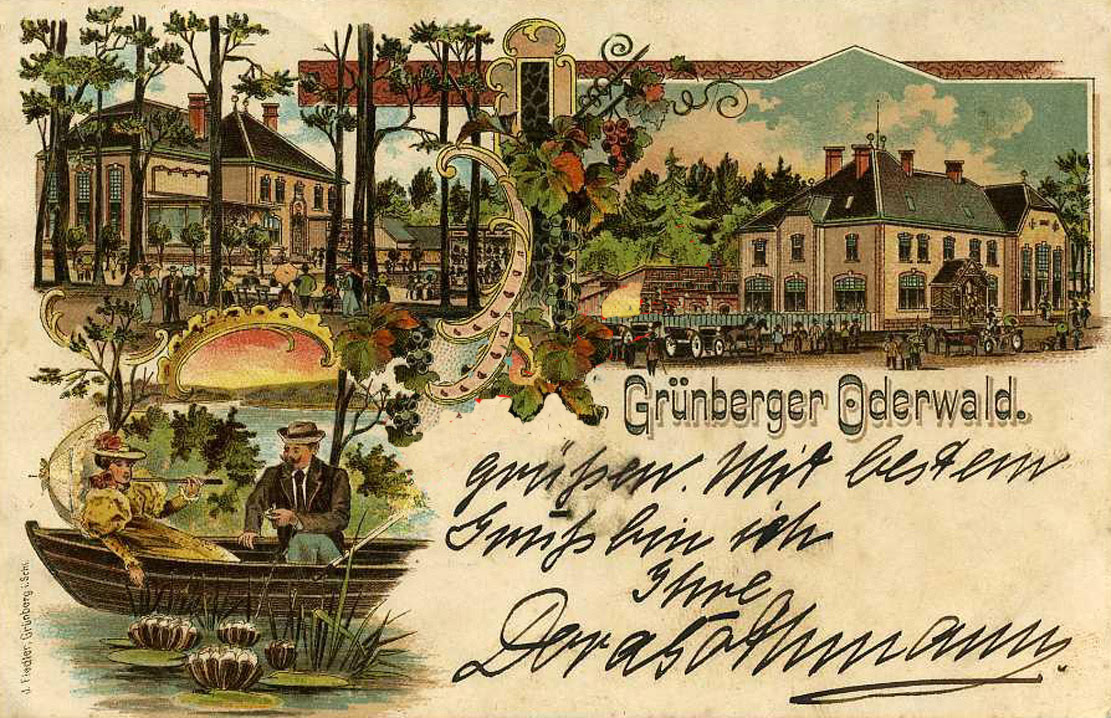 Grünberger Oderwald.
grüßen. Mit bestem
Gruß bin ich
Ihre
Dora Othmann.
J. Fiedler, Grünberg i. Schl.